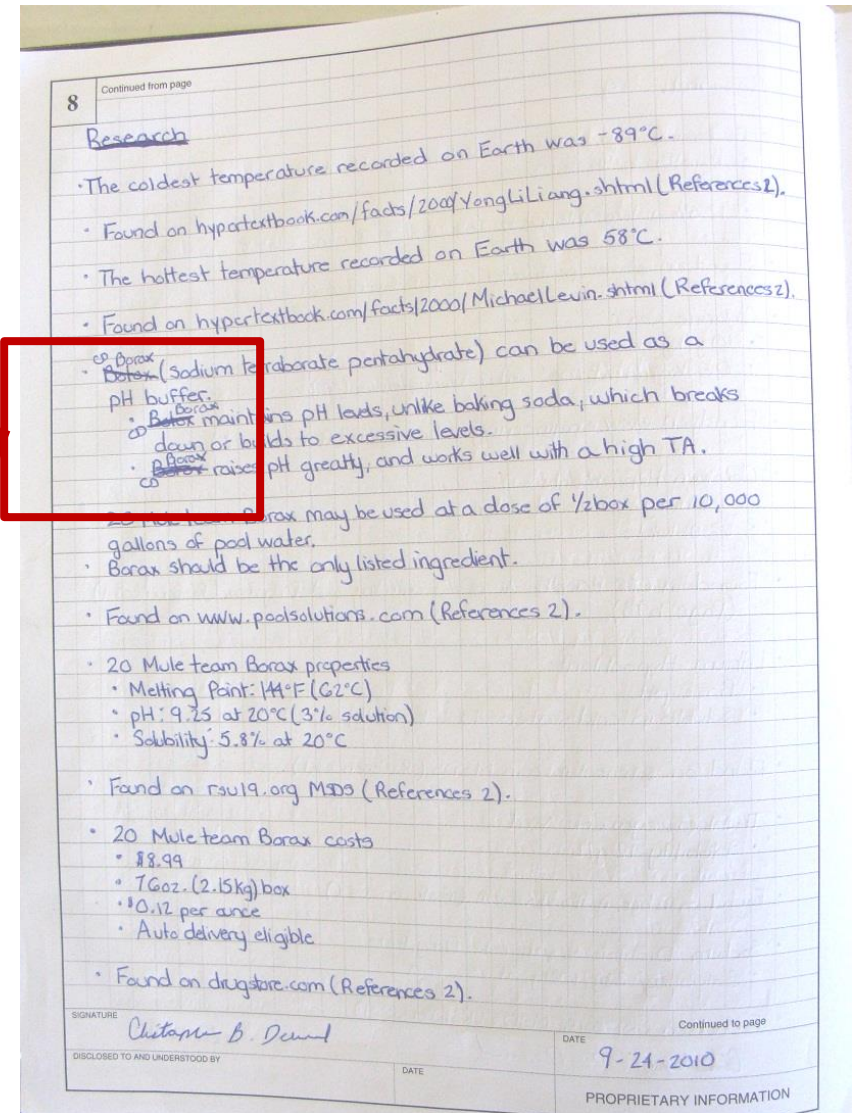 8
Continued from page
Research
· The coldest temperature recorded on Earth was -89°C.
· Found on hypertextbook.com/facts/2000/YongLiLiang.shtml (References 2).
· The hottest temperature recorded on Earth was 58°C.
· Found on hypertextbook.com/facts/2000/MichaelLevin.shtml (References 2).
Borax
· Botox (sodium tetraborate pentahydrate) can be used as a
pH buffer.
Borax
· Botox maintains pH levels, unlike baking soda, which breaks
down or builds to excessive levels.
Borax
· raises pH greatly, and works well with a high TA.
20 Mule team Borax may be used at a dose of 1/2 box per 10,000
gallons of pool water.
· Borax should be the only listed ingredient.
· Found on www.poolsolutions.com (References 2).
· 20 Mule team Borax properties
· Melting Point: 144°F (62°C)
· pH: 9.25 at 20°C (3% solution)
· Solubility: 5.8% at 20°C
· Found on rsu19.org MSDS (References 2).
· 20 Mule team Borax costs
· $8.99
· 76oz. (2.15kg) box
· $0.12 per ounce
· Auto delivery eligible
· Found on drugstore.com (References 2).
SIGNATURE
Continued to page
DATE
9-24-2010
DISCLOSED TO AND UNDERSTOOD BY
DATE
PROPRIETARY INFORMATION